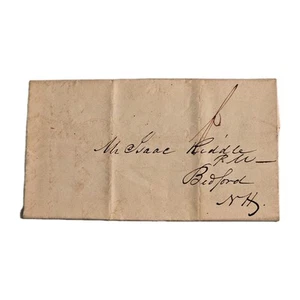 Mr Isaac Riddle
P.M—
Bedford
N.H.